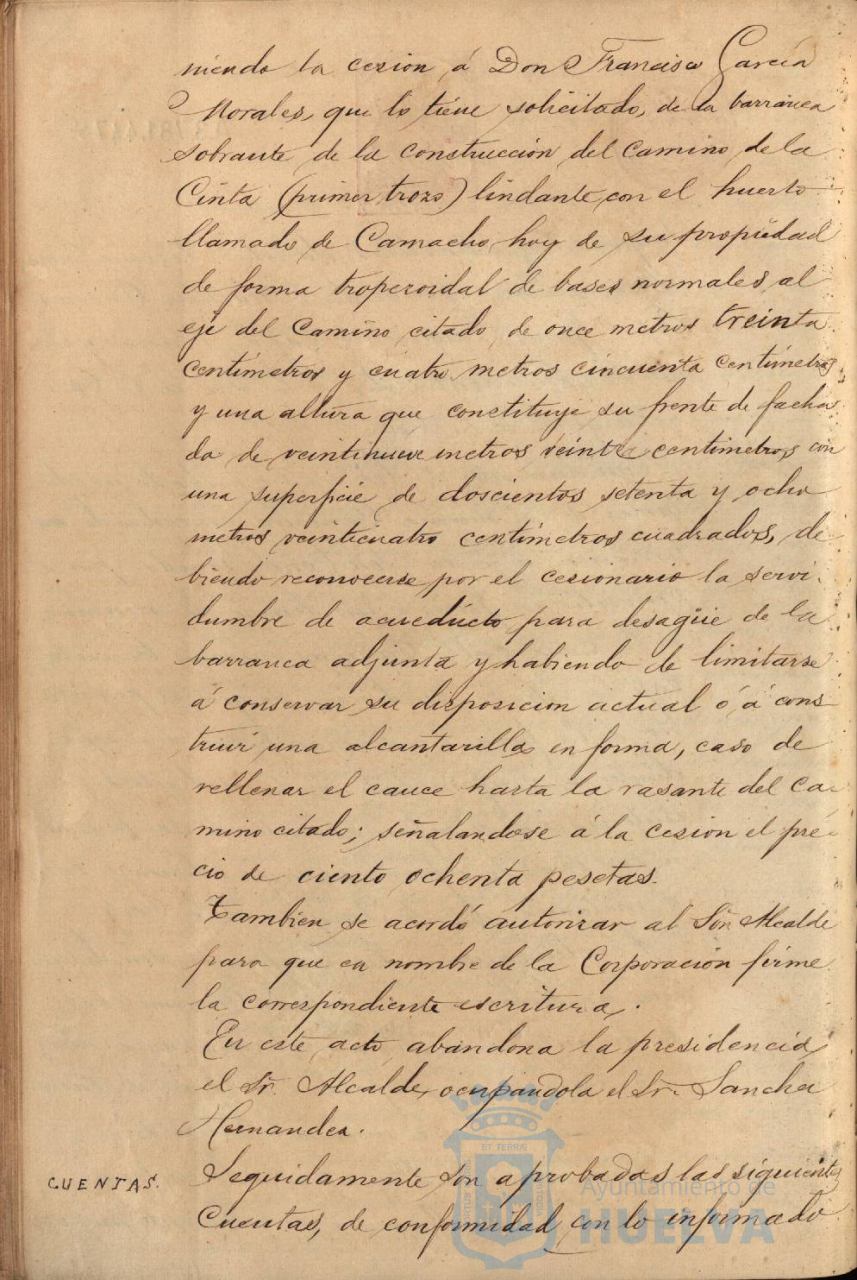 niendo la cesion á Don Francisco García
Morales, que lo tiene solicitado, de la barranca
sobrante de la construcción del camino de la
Cinta (primer trozo) lindante con el huerto
llamado de Camacho, hoy de su propiedad
de forma troperoidal de bases normales al
eje del Camino citado de once metros treinta
centímetros y cuatro metros cincuenta centímetros
y una altura que constituye su frente de facha
da de veintinueve metros veinte centímetros con
una superficie de doscientos setenta y ocho
metros veinticuatro centímetros cuadrados, de-
biendo reconocerse por el cesionario la servi-
dumbre de acuedúcto para desagüe de la
barranca adjunta y habiendo de limitarse
á conservar su disposicion actual ó á cons
truir una alcantarilla en forma, caso de
rellenar el cauce hasta la rasante del ca-
mino citado; señalandose á la cesion el pré-
cio de ciento ochenta pesetas.
Tambien se acordó autorizar al Sõr Alcalde
para que en nombre de la Corporación firme
la correspondiente escritura.
En este acto abandona la presidencia
el Sr. Alcalde, ocupandola el Sr. Sancha
Hernandez.
CUENTAS. Seguidamente son aprobadas las siguientes
Cuentas, de conformidad con lo informado
Ayuntamiento de
HUELVA